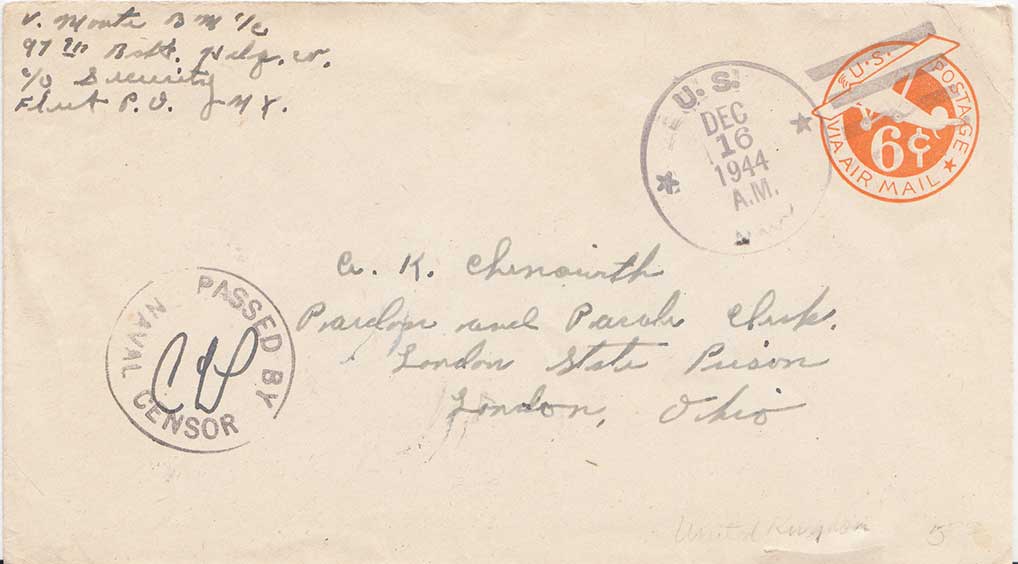 V. Monte B M 1/c
97th Batt.
c/o Security
Fleet P. O. NY.
U.S.
DEC
16
1944
A.M.
Navy
U.S. POSTAGE
6¢
VIA AIR MAIL
K. Chenowirth
Pardon and Parole Clerk.
London State Prison
London, Ohio
PASSED BY
NAVAL CENSOR
United Kingdom 5